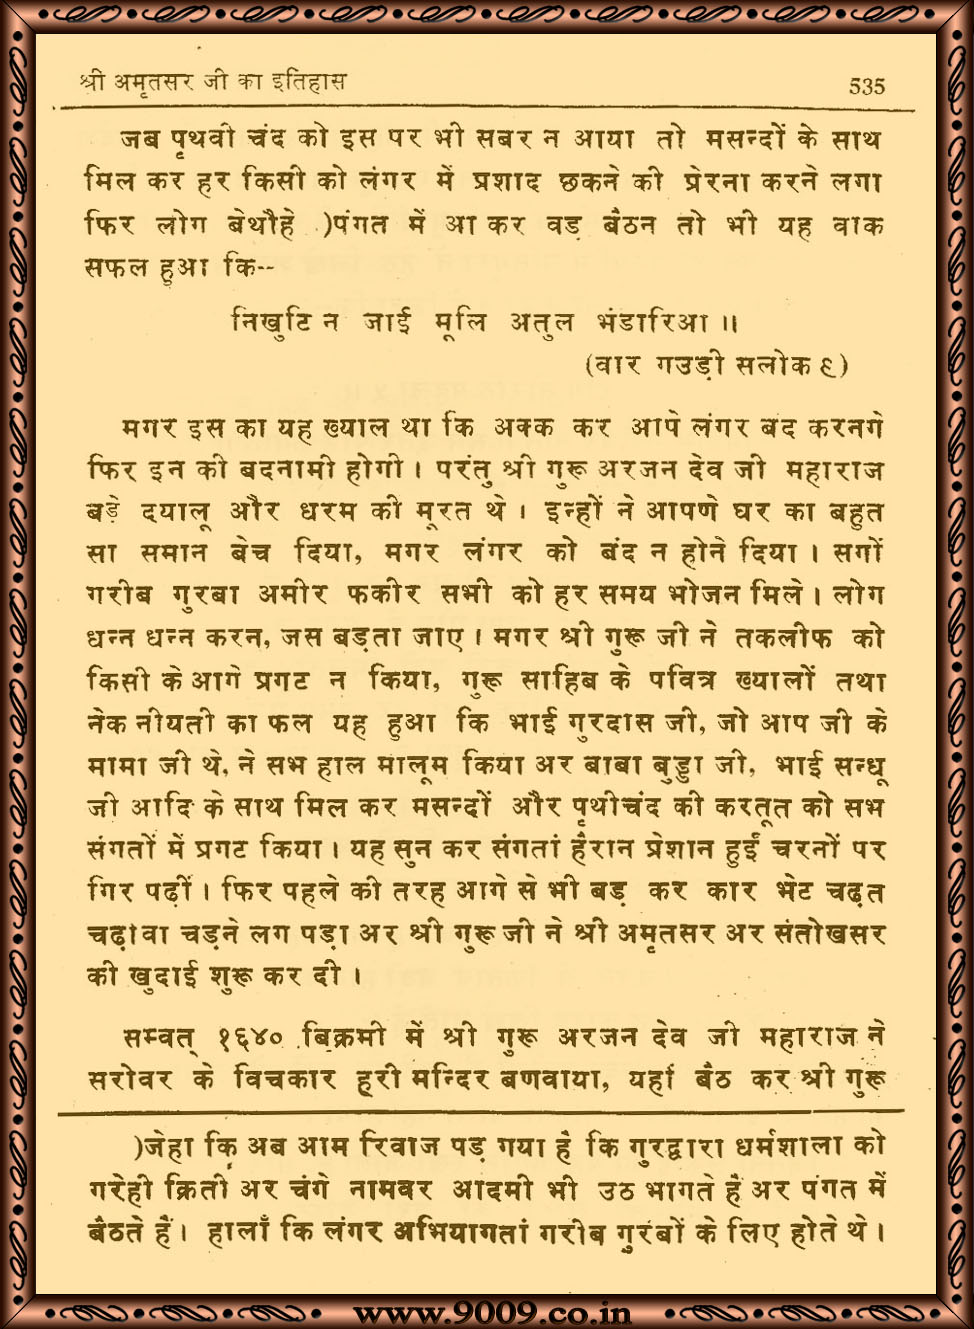 श्री अमृतसर जी का इतिहास 535
जब पृथवी चंद को इस पर भी सबर न आया तो मसन्दों के साथ
मिल कर हर किसी को लंगर में प्रशाद छकने की प्रेरना करने लगा
फिर लोग बेथौहे )पंगत में आ कर वड़ बैठन तो भी यह वाक
सफल हुआ कि--
निखुटि न जाई मूलि अतुल भंडारिआ ॥
(वार गउड़ी सलोक ६)
मगर इस का यह ख्याल था कि अक्क कर आपे लंगर बद करनगे
फिर इन की बदनामी होगी । परंतु श्री गुरू अरजन देव जी महाराज
बड़े दयालू और धरम की मूरत थे । इन्हों ने आपणे घर का बहुत
सा समान बेच दिया, मगर लंगर को बंद न होने दिया । सगों
गरीब गुरबा अमीर फकीर सभी को हर समय भोजन मिले । लोग
धन्न धन्न करन, जस बड़ता जाए । मगर श्री गुरू जी ने तकलीफ को
किसी के आगे प्रगट न किया, गुरू साहिब के पवित्र ख्यालों तथा
नेक नीयती का फल यह हुआ कि भाई गुरदास जी, जो आप जी के
मामा जी थे, ने सभ हाल मालूम किया अर बाबा बुड्डा जी, भाई सन्धू
जी आदि के साथ मिल कर मसन्दों और पृथीचंद की करतूत को सभ
संगतों में प्रगट किया । यह सुन कर संगतां हैरान प्रेशान हुईं चरनों पर
गिर पढ़ीं । फिर पहले की तरह आगे से भी बड़ कर कार भेट चढ़त
चढ़ावा चड़ने लग पड़ा अर श्री गुरू जी ने श्री अमृतसर अर संतोखसर
की खुदाई शुरू कर दी ।
सम्वत् १६४० बिक्रमी में श्री गुरू अरजन देव जी महाराज ने
सरोवर के विचकार हरी मन्दिर बणवाया, यहां बैठ कर श्री गुरू
)जेहा कि अब आम रिवाज पड़ गया है कि गुरद्वारा धर्मशाला को
गरेही क्रिती अर चंगे नामवर आदमी भी उठ भागते है अर पंगत में
बैठते हैं । हालाँ कि लंगर अभियागतां गरीब गुरबों के लिए होते थे ।
www.9009.co.in